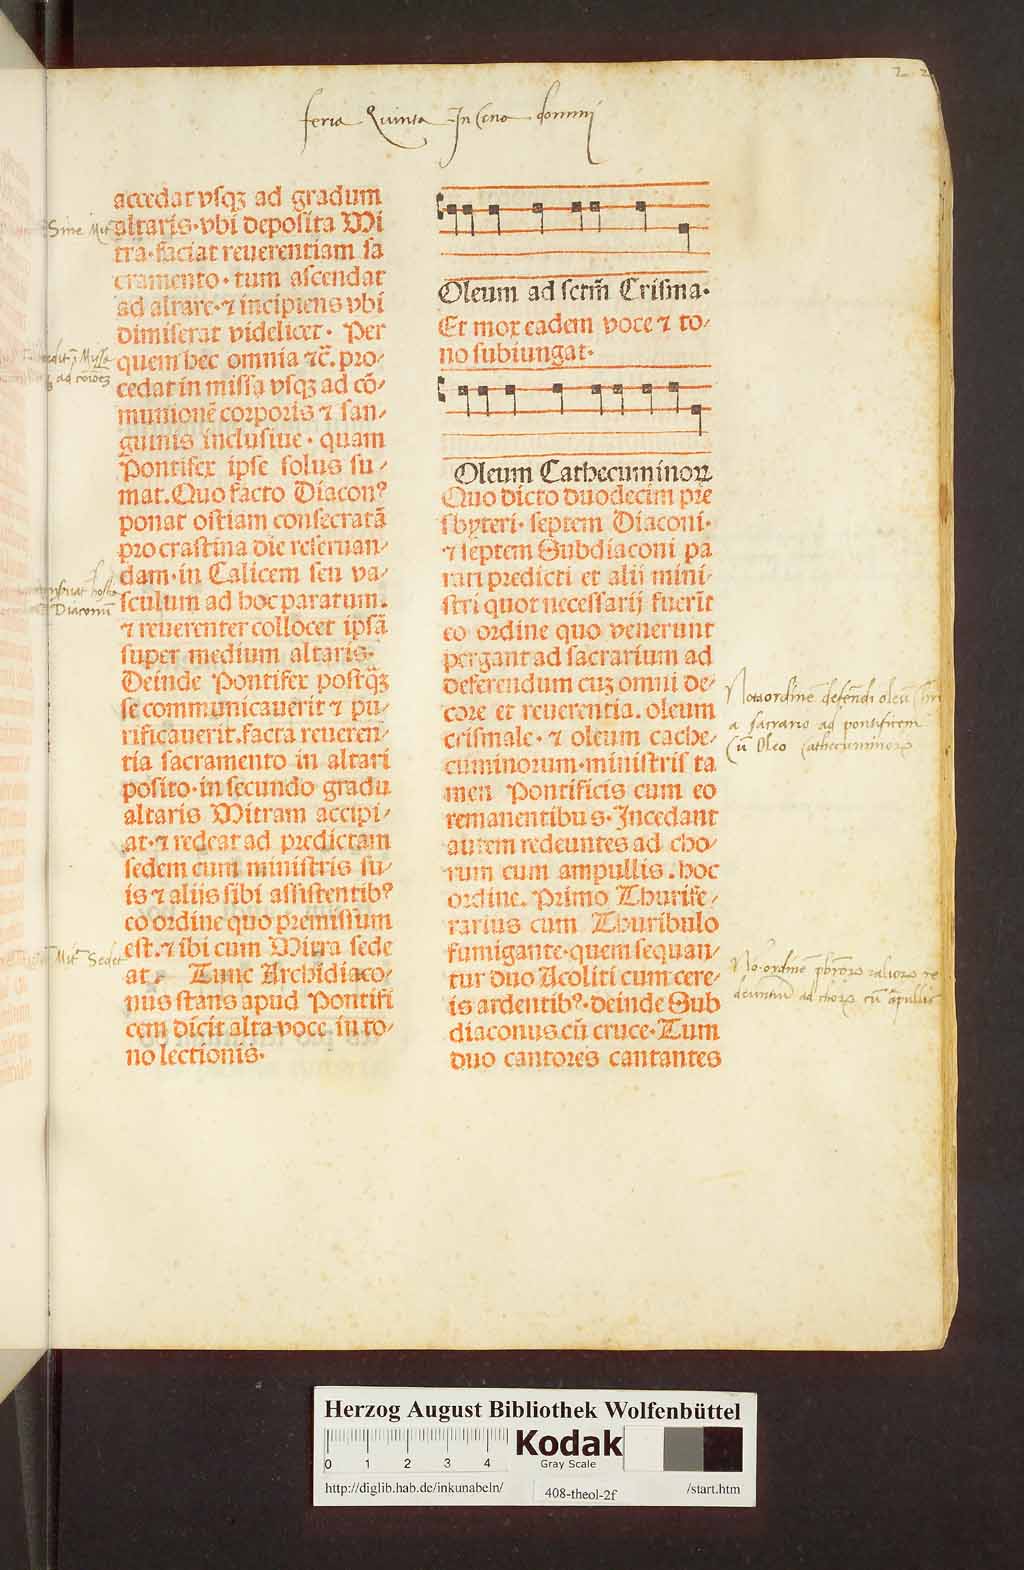 feria Quinta In Cena domini
accedat vsqꝫ ad gradum
altaris·vbi deposita Mi
tra·faciat reuerentiam sa
cramento·tum ascendat
ad altare·⁊ incipiens vbi
dimiserat videlicet· Per
quem hec omnia ⁊c̄.pro⸗
cedat in missa vsqꝫ ad cō⸗
munionē corporis ⁊ san⸗
guinis inclusiue· quam
Pontifex ipse solus su⸗
mat.Quo facto Diaconꝰ
ponat ostiam consecratā
pro crastina die reseruan⸗
dam·in Calicem seu va⸗
sculum ad hoc paratum.
⁊ reuerenter collocet ipsā
super medium altaris·
Deinde Pontifex postqꝫ
se communicauerit ⁊ pu⸗
rificauerit.facta reueren⸗
tia sacramento in altari
posito·in secundo gradu
altaris Mitram accipi⸗
at·⁊ redeat ad predictam
sedem cum ministris su⸗
is ⁊ aliis sibi assistentibꝰ
eo ordine quo premissum
est.⁊ ibi cum Mitra sede
at· Tunc Archidiaco⸗
nus stans apud Pontifi
cem dicit alta voce in to⸗
no lectionis·
Sine Mit
Diaconū
Mit Sedet
Oleum ad sctm̄ Crisma·
Et mox eadem voce ⁊ to⸗
no subiungat·
Oleum Cathecuminoꝝ
Quo dicto duodecim pre
sbyteri· septem Diaconi·
⁊ septem Subdiaconi pa
rati predicti et alii mini⸗
stri quot necessarij fuerīt
eo ordine quo venerunt
pergant ad sacrarium ad
deferendum cuꝫ omni de⸗
core et reuerentia. oleum
crismale·⁊ oleum cathe⸗
cuminorum·ministris ta
men Pontificis cum eo
remanentibus·Incedant
autem redeuntes ad cho⸗
rum cum ampullis.hoc
ordine. Primo Thurife⸗
rarius cum Thuribulo
fumigante·quem sequan⸗
tur duo Acoliti cum cere⸗
is ardentibꝰ·deinde Sub
diaconus cū cruce·Tum
duo cantores cantantes
Nota ordinē defendi oleū
a sacrario ad pontificem
Cū Oleo Cathecuminoꝝ
No·ordinē pbroꝝ ralioꝝ re
deuntiū ad choꝝ cū āpullis
Herzog August Bibliothek Wolfenbüttel
0 1 2 3 4
Kodak
Gray Scale
http://diglib.hab.de/inkunabeln/
408-theol-2f
/start.htm